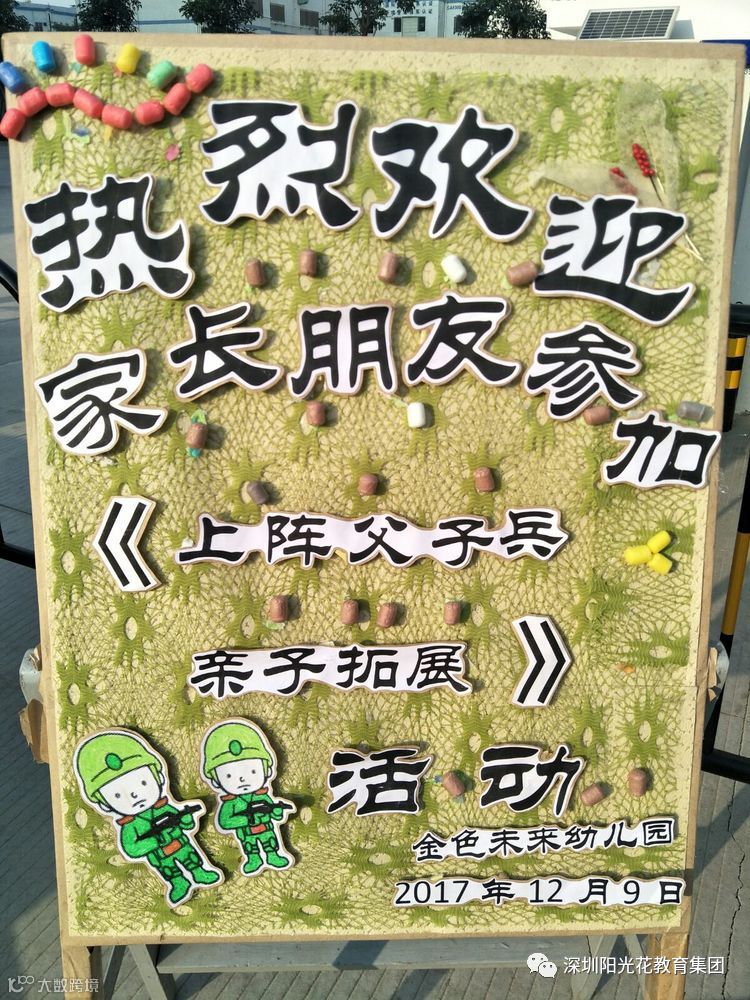 热烈欢迎
家长朋友参加
《上阵父子兵
亲子拓展》
活动
金色未来幼儿园
2017年12月9日
深圳阳光花教育集团
大数跨境